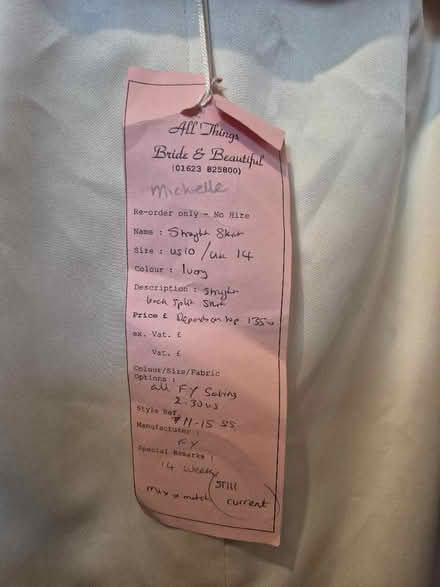 All Things
Bride & Beautiful
(01623 825800)
Michelle
Re-order only - No Hire
Name : Straight Skirt
Size : US10 / UK 14
Colour : Ivory
Description : Straight
back split skirt
Price £ Depends on top 135
ex. Vat. £
Vat. £
Colour/Size/Fabric
Options :
all F.Y Satins
2-30
Style Ref.
11-15
Manufacturer :
F.Y
Special Remarks :
14 weeks
mix & match
(still
current)